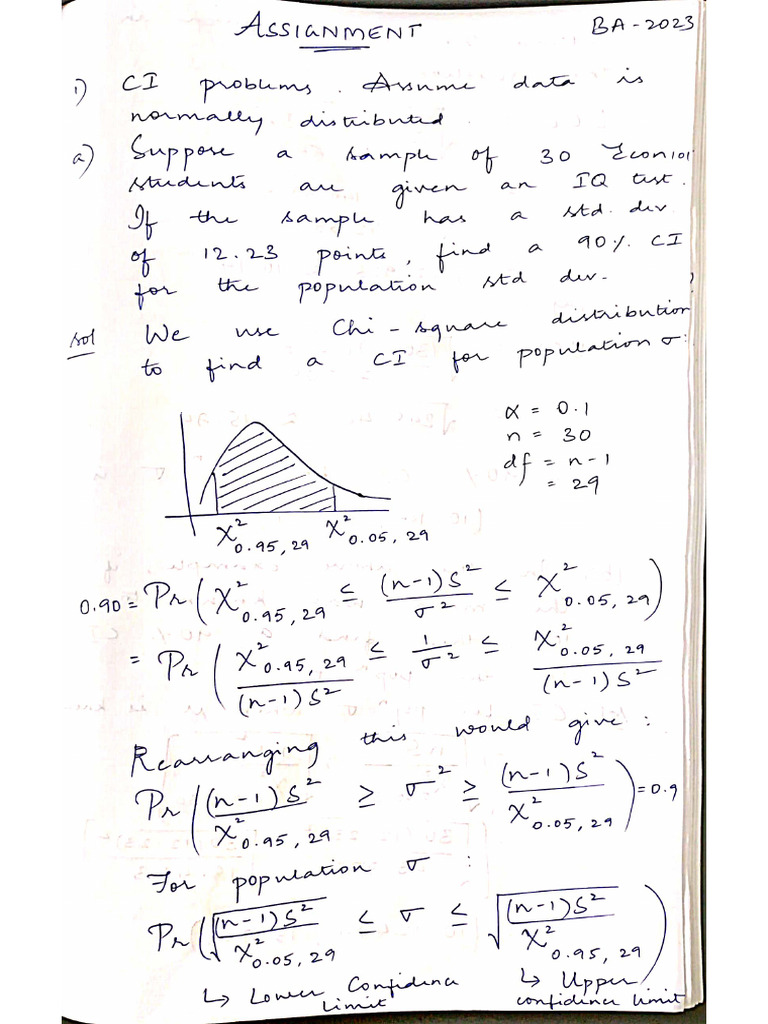 ASSIGNMENT BA-2023
1) CI problems. Assume data is
normally distributed.
a) Suppose a sample of 30 Econ101
students are given an IQ test.
If the sample has a std. dev.
of 12.23 points, find a 90% CI
for the population std dev.
sol We use Chi-square distribution
to find a CI for population σ:
α = 0.1
n = 30
df = n-1
= 29
χ²0.95, 29 χ²0.05, 29
0.90 = Pr( χ²0.95, 29 ≤ (n-1)S²/σ² ≤ χ²0.05, 29 )
= Pr( χ²0.95, 29/(n-1)S² ≤ 1/σ² ≤ χ²0.05, 29/(n-1)S²
Rearranging this would give:
Pr( (n-1)S²/χ²0.95, 29 ≥ σ² ≥ (n-1)S²/χ²0.05, 29 ) = 0.9
For population σ :
Pr( √((n-1)S²/χ²0.05, 29) ≤ σ ≤ √((n-1)S²/χ²0.95, 29) )
↳ Lower Confidence ↳ Upper
limit confidence limit